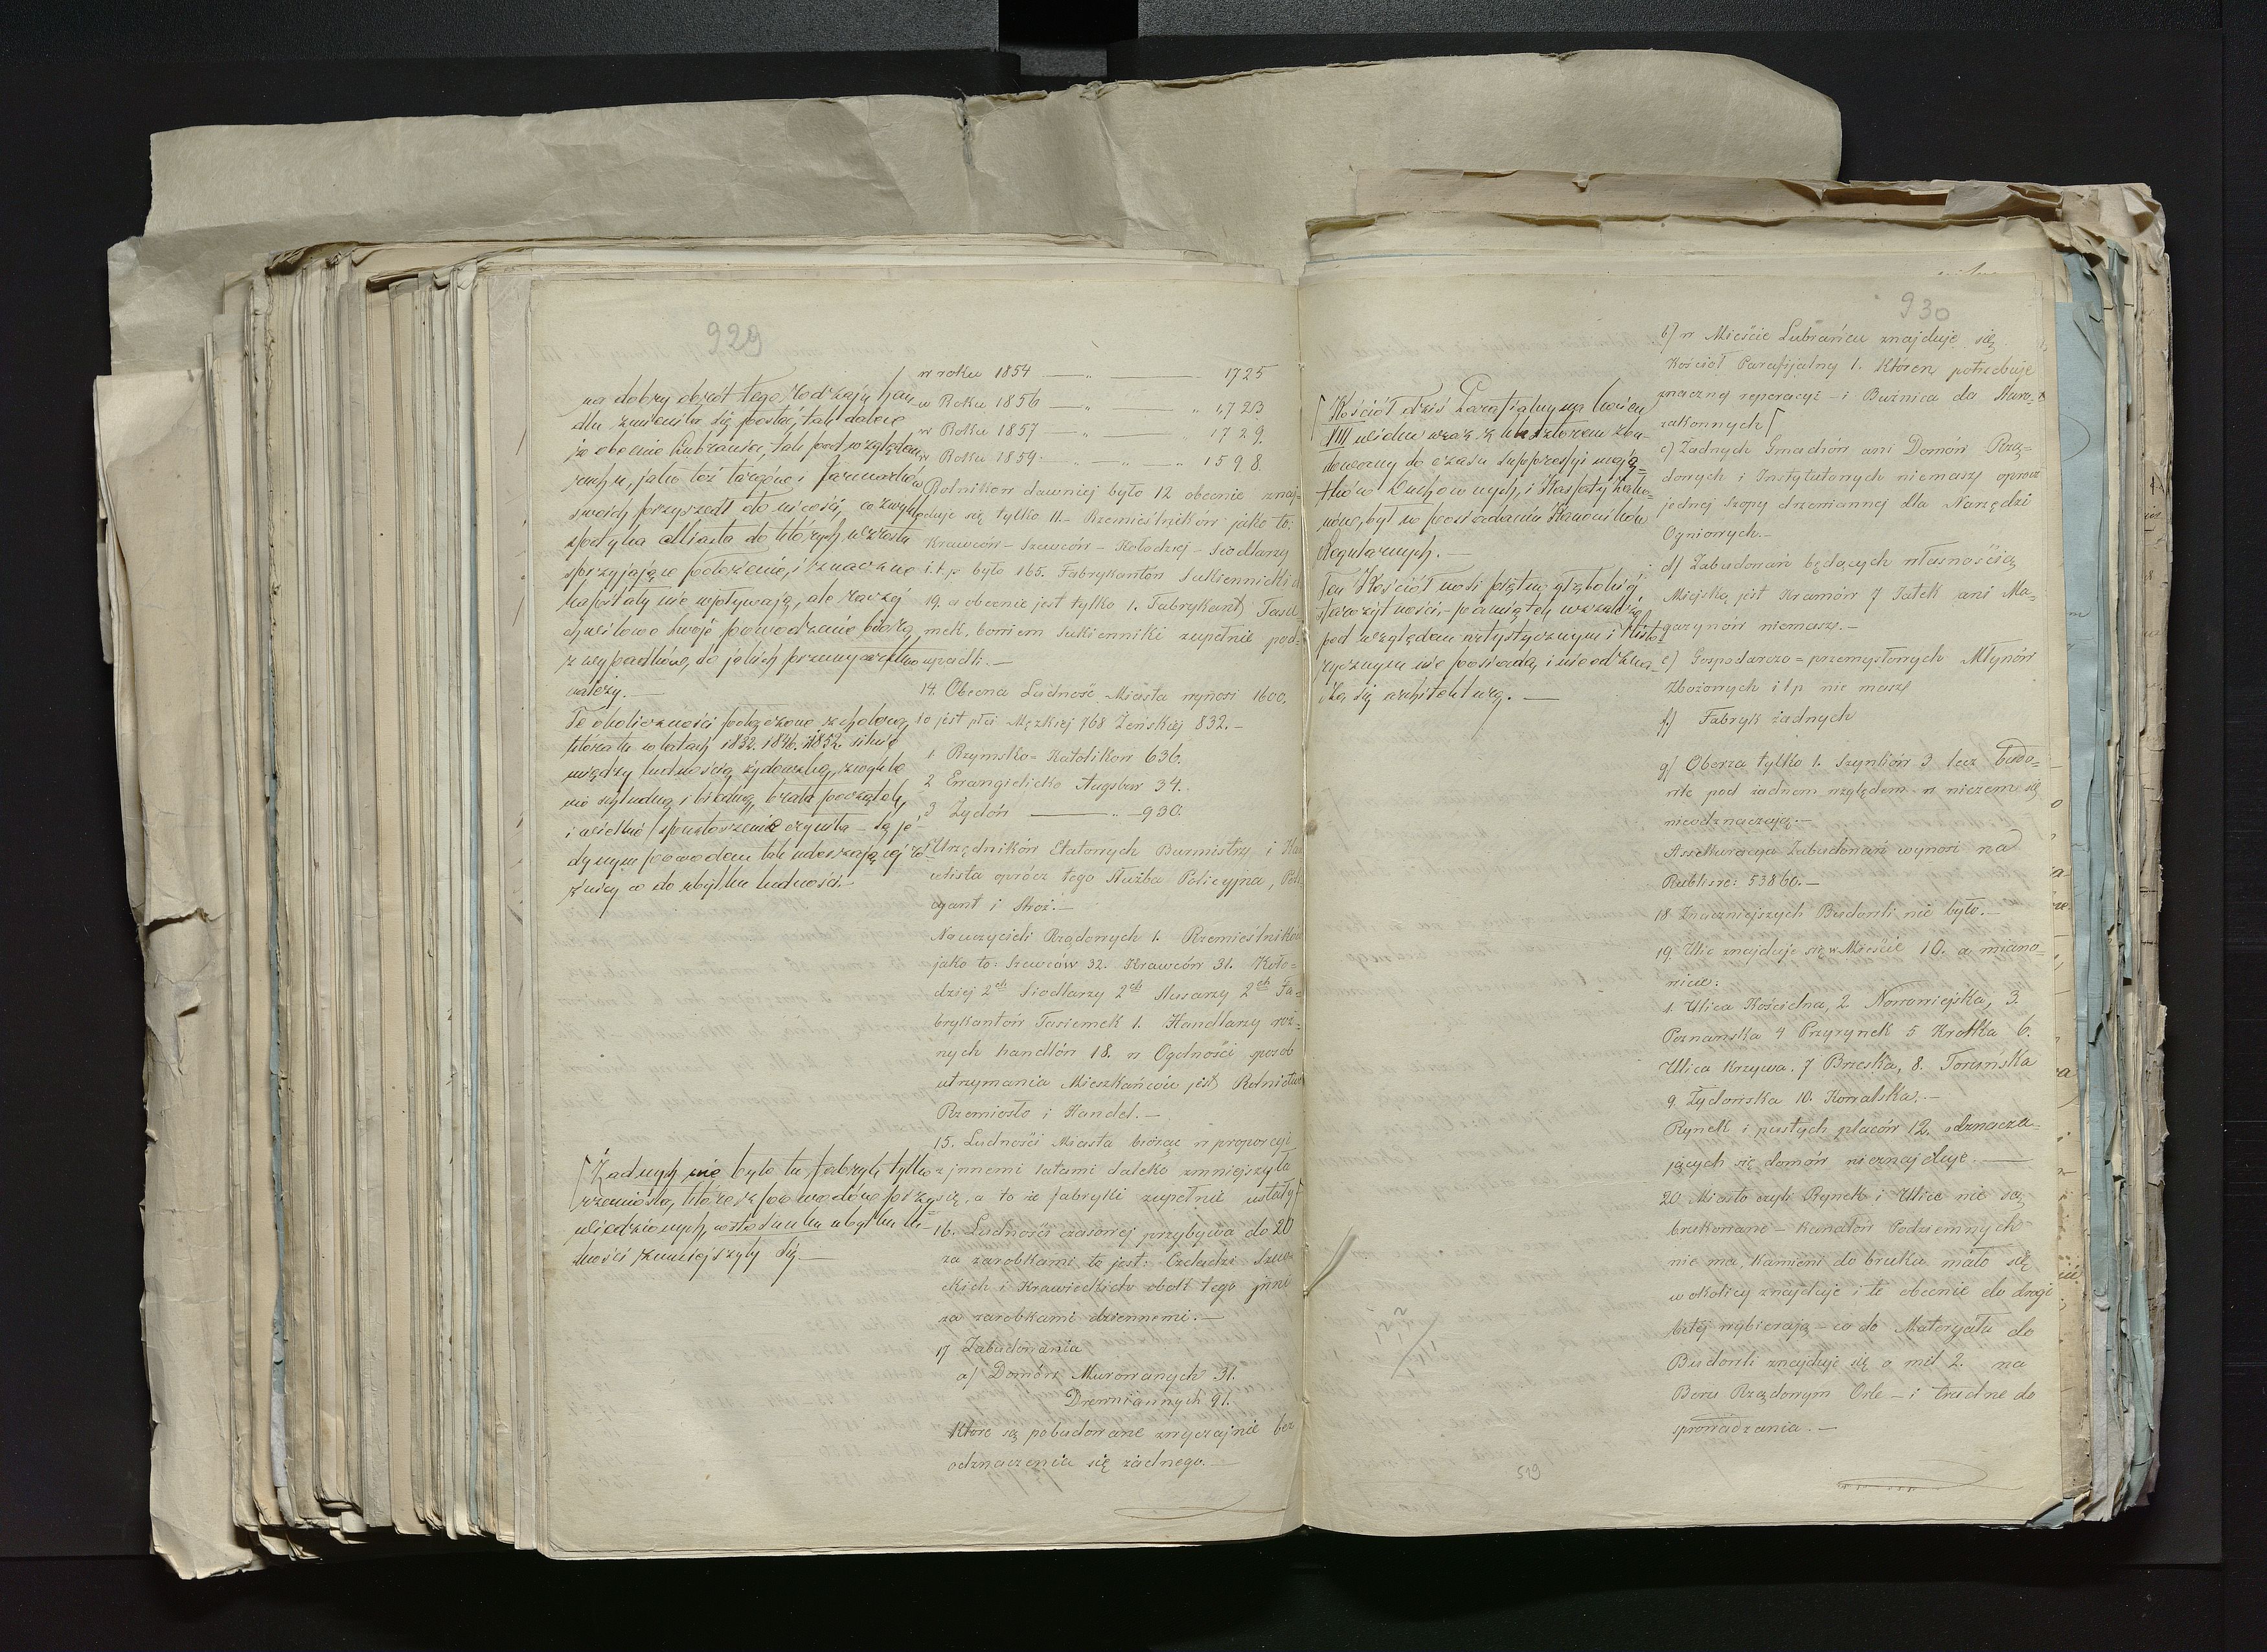 929
na dobry obrót tego rodzaju han-
dlu zmieniła się postać, tak dalece
że obecnie Lubraniec, tak pod względem
ruchu, jako też targów i Jarmarków
swoich przyszedł do nicości, co zwykle
spotyka Miasta do których wzrostu
sprzyjające położenie, i znaczne
kapitały nie wpływają, ale raczej
chwilowe swoje powodzenie biorą
z wypadków, do jakich przemysł
należy.—
Te okoliczności połączone z cholerą,
która tu w latach 1832. 1848. i 1852. silnie
między ludnością żydowską, zwykle
nie schludną i biedną, brała początek,
i wielkie spustoszenie czyniła — są je-
dynym powodem tak uderzającej ró-
żnicy co do ubytku ludności.—
Żadnych nie było tu fabryk tylko
rzemiosła, które z powodów przy-
wiedzionych, w stosunku ubytku lu-
dności zmniejszyły się.—
w roku 1854 — „ — 1725
w Roku 1856 — „ — „ 1723
w Roku 1857 — „ — „ 1729.
w Roku 1859 — „ — „ — „ 1598.
Rolników dawniej było 12 obecnie znaj-
duje się tylko 11.— Rzemieślników jako to:
Krawców — Szewców — Kołodziej — Siodlarzy
i.t.p. było 165. Fabrykantów Sukiennickich
19. a obecnie jest tylko 1. Fabrykant Tasie-
mek, bowiem Sukienniki zupełnie pod-
upadli.—
14. Obecna Ludność Miasta wynosi 1600.
to jest płci Męzkiej 768 Żeńskiej 832.—
1 Rzymsko = Katolikow 636.
2 Ewangielicko Augsbur 34.
3 Żydów — „ — 930.
Urzędników Etatowych Burmistrz i Kan
celista oprócz tego Służba Policyjna, Poli
cyant i Stroż.—
Nauczycieli Rządowych 1. Rzemieślników
jako to: Szewców 32. Krawców 31. Koło=
dziej 2ch Siodlarzy 2ch Slusarzy 2ch Fa=
brykantów Tasiemek 1. Handlarzy róż=
nych handlów 18. w Ogolności sposob
utrzymania Mieszkańców jest Rolnictwo
Rzemiosło i Handel.—
15. Ludności Miasta biorąc w proporcyi
z innemi latami daleko zmniejszyła
się, a to że fabryki zupełnie ustały
16. Ludności czasowej przybywa do 20
za zarobkami to jest: Czeladzi Szew
ckich i Krawieckich obok tego inni
za zarobkami dziennemi.—
17 Zabudowania
a/ Domów Murowanych 31.
Drewnianych 91.
Które są pobudowane zwyczajnie bez
odznaczenia się żadnego.—
930
Kościół dziś Parafialny na końcu
XIII wieku wraz z klasztorem zbu-
dowany do czasu suppressyi mają=
tków Duchownych, i Kassaty Zako=
nów, był w posiadaniu Kanoników
Regularnych.—
Ten Kościół nosi piętno głębokiej
starożytności,— pamiątek wszakże
pod względem artystycznym i Histo-
rycznym nie posiada, i nie odzna-
cza się architekturą.—
b/ w Mieście Lubrańcu znajduje się
Kościoł Parafijalny 1. Któren potrzebuje
znacznej reperacyi — i Bużnica dla Staro-
zakonnych
c/ Żadnych Gmachów ani Domów Rzą=
dowych i Instytutowych niemasz oprocz
jednej Szopy drzewiannej dla Narzędzi
Ogniowych.—
d/ Zabudowań będących własnością
Miejską jest Kramów 7 Jatek ani Ma=
gazynów niemasz.—
e) Gospodarczo = przemysłowych Młynów
Zbożowych i t p nie masz
f.) Fabryk żadnych
g/ Oberza tylko 1. Szynków 3 lecz budo=
wle pod żadnem względem w niczem się
nieodznaczają.—
Assekuracya Zabudowań wynosi na
Rublisre: 53860.—
18 Znaczniejszych Budowli nie było.—
19 Ulic znajduje się w Mieście 10. a miano-
nicie:
1. Ulica Kościelna, 2 Nowowiejska, 3.
Poznańska 4 Przyrynek 5 Krotka 6.
Ulica Krzywa. 7 Brzeska, 8. Toruńska
9. Żydowska 10. Kowalska.—
Rynek i pustych placów 12. odznacza=
jących się domów nieznajduje.—
20 Miasto czyli Rynek i Ulice nie są
brukowane — Kanałow Podziemnych
nie ma, Kamieni do bruku mało się
w okolicy znajduje i te obecnie do drogi
bitej wybierają — co do Materyału do
Budowli znajduje się o mil 2. na
Boru Rządowym Orle — i trudne do
sprowadzania.—
519